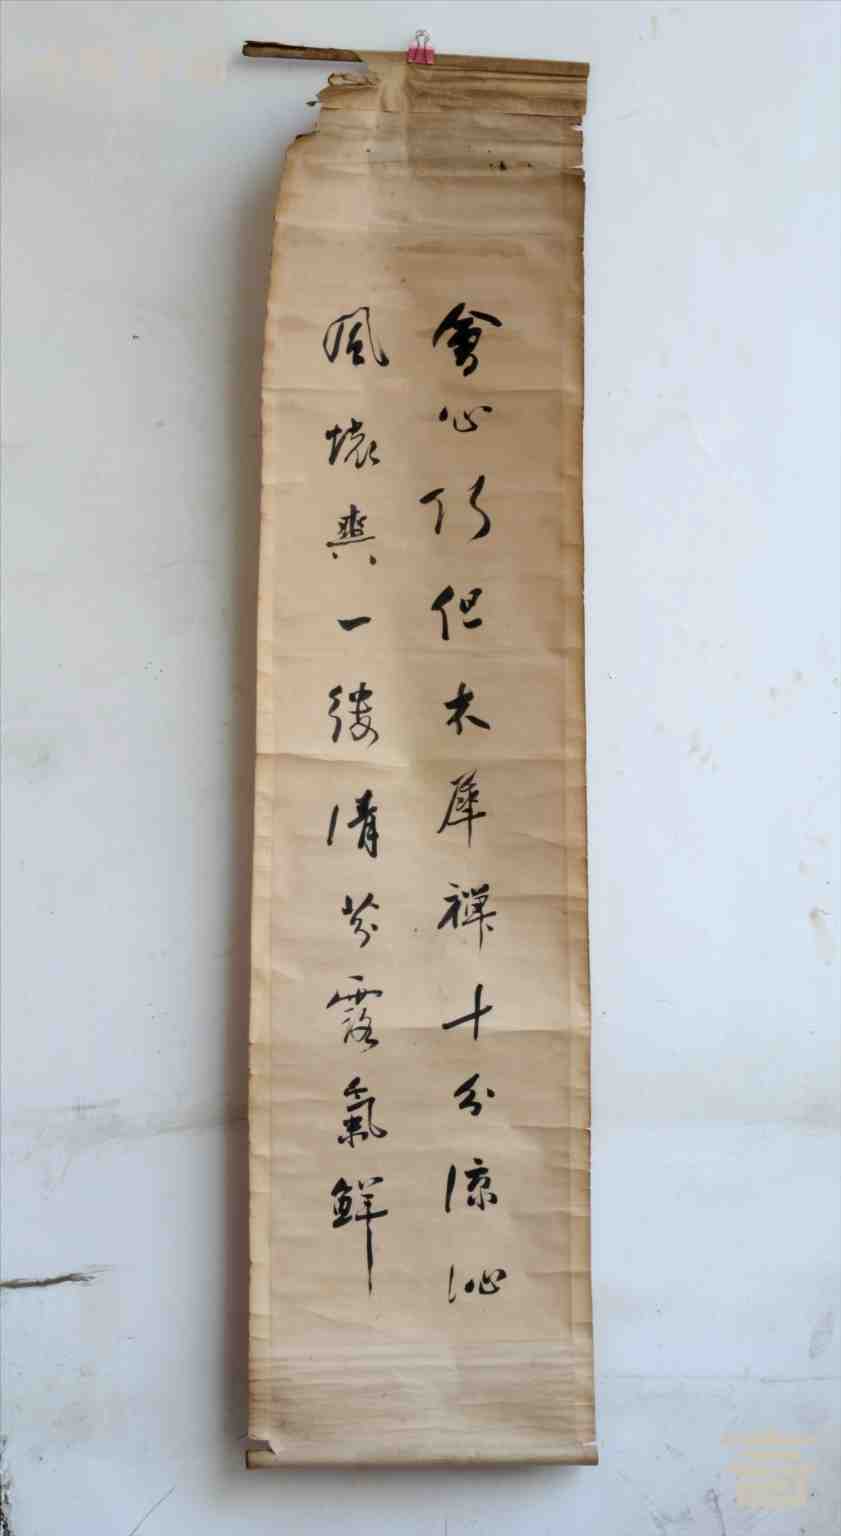 會心但木犀禪十分涼沁
風懷爽一縷清芬露氣鮮